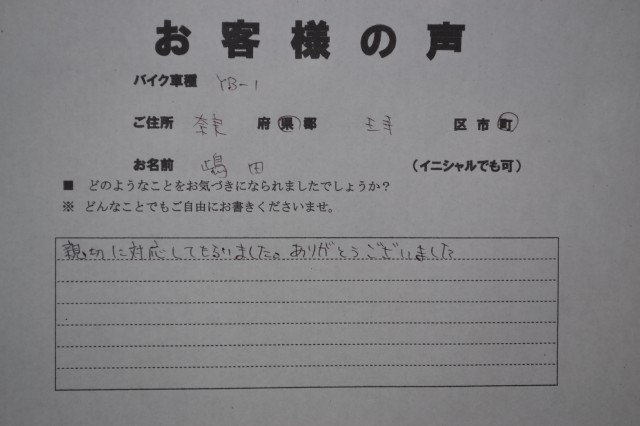 お客様の声
バイク車種 YB-1
ご住所 奈良 府県郡 王寺 区市町
お名前 嶋田 (イニシャルでも可)
■ どのようなことをお気づきになられましたでしょうか?
※ どんなことでもご自由にお書きくださいませ。
親切に対応してもらいました。ありがとうございました